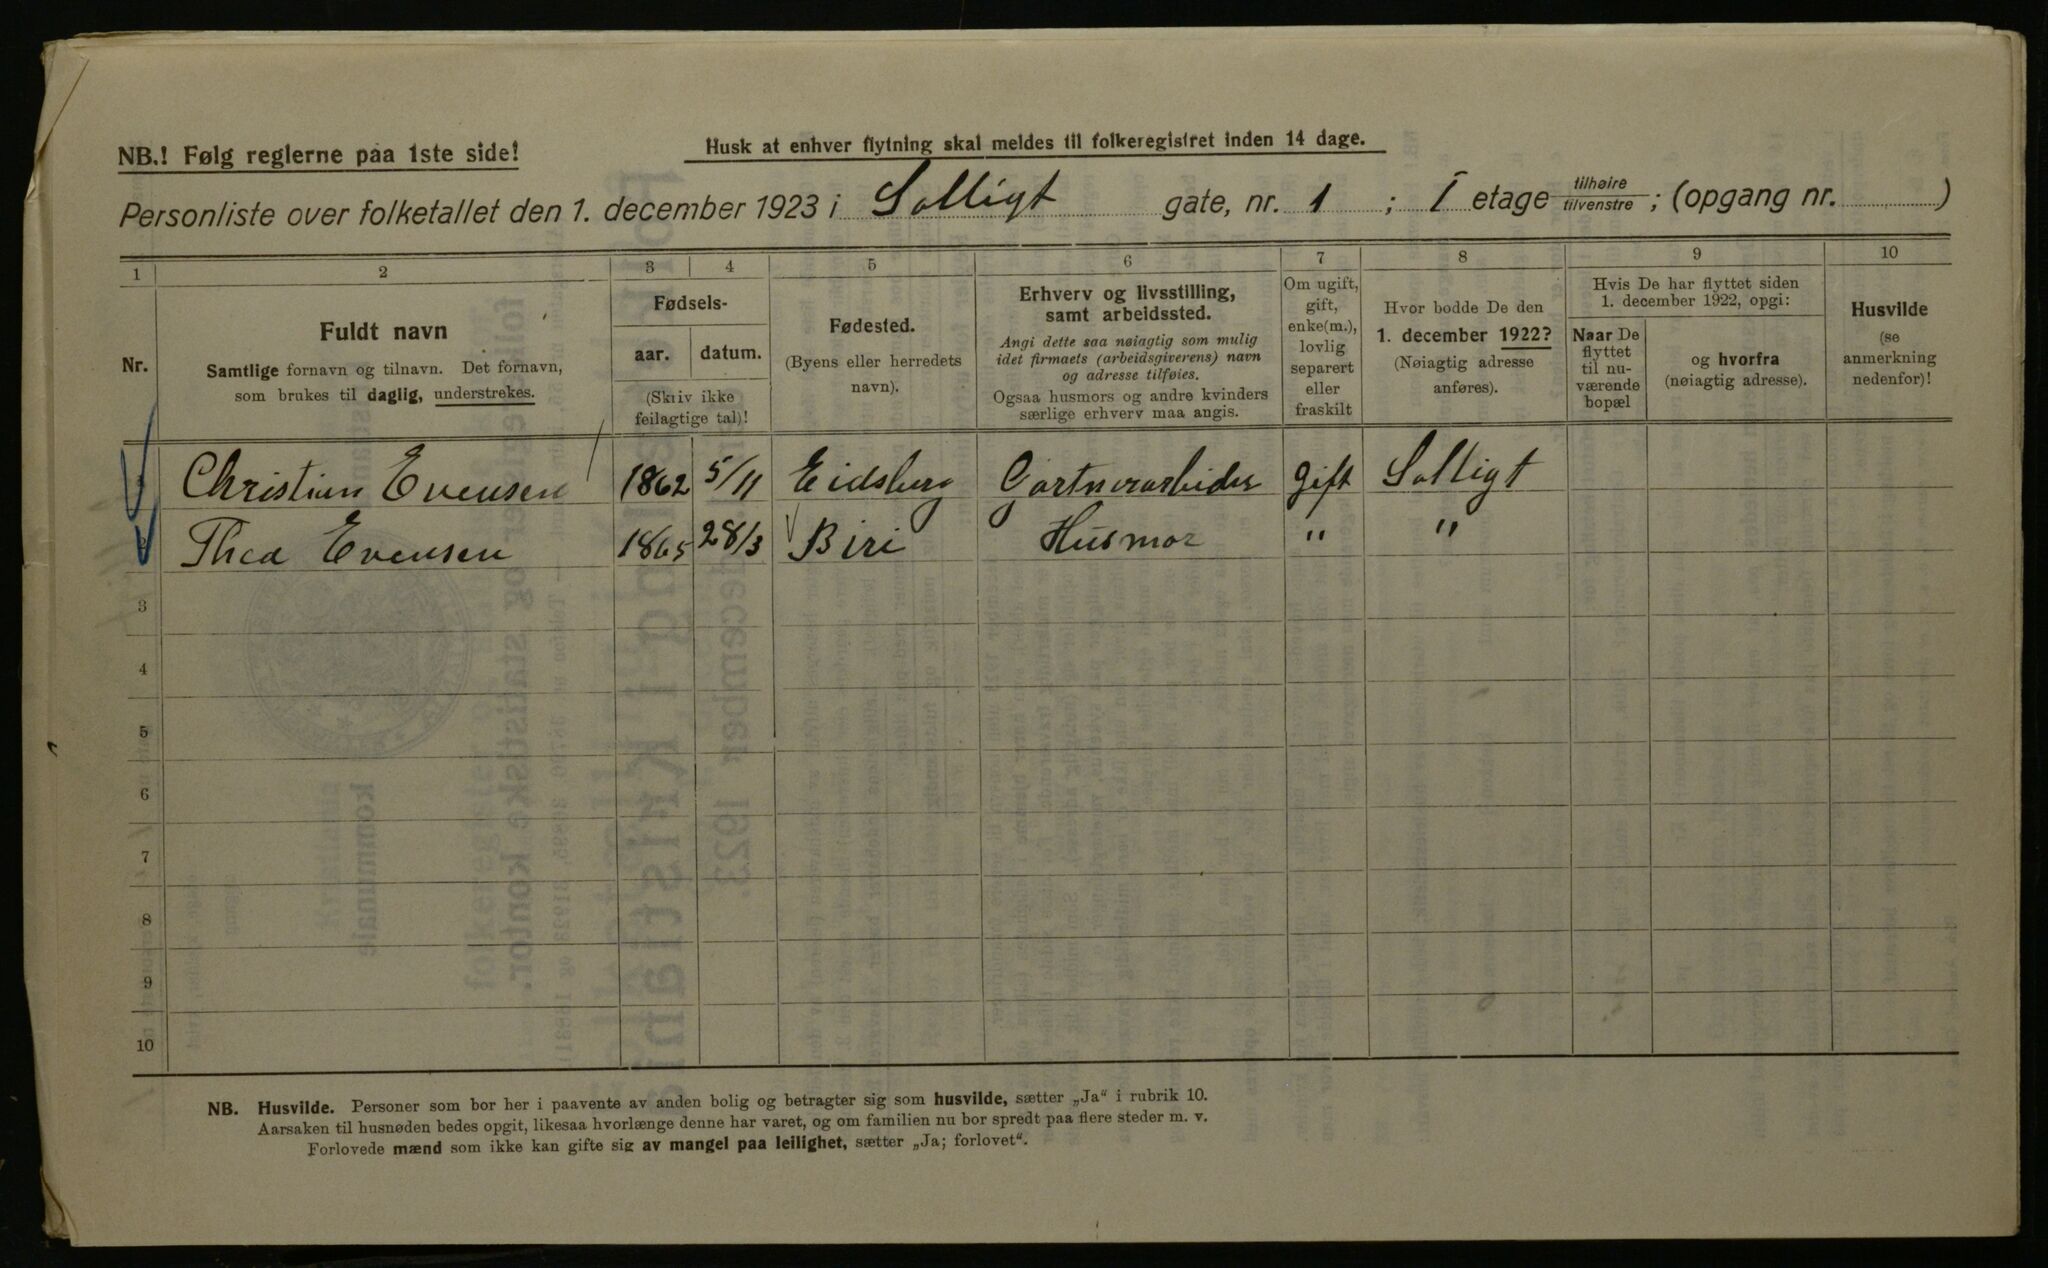 NB.! Følg reglerne paa 1ste side!
Husk at enhver flytning skal meldes til folkeregistret inden 14 dage.
Personliste over folketallet den 1. december 1923 i Solligt gate, nr. 1 ; I etage tilhøire tilvenstre ; (opgang nr. )
1 2 3 4 5 6 7 8 9 10
Nr.
Fuldt navn
Samtlige fornavn og tilnavn. Det fornavn,
som brukes til daglig, understrekes.
Fødsels-
aar. datum.
(Skriv ikke
feilagtige tal)!
Fødested.
(Byens eller herredets
navn).
Erhverv og livsstilling,
samt arbeidssted.
Angi dette saa nøiagtig som mulig
idet firmaets (arbeidsgiverens) navn
og adresse tilføies.
Ogsaa husmors og andre kvinders
særlige erhverv maa angis.
Om ugift,
gift,
enke(m.),
lovlig
separert
eller
fraskilt
Hvor bodde De den
1. december 1922?
(Nøiagtig adresse
anføres).
Hvis De har flyttet siden
1. december 1922, opgi:
Naar De
flyttet
til nu-
værende
bopæl
og hvorfra
(nøiagtig adresse).
Husvilde
(se
anmerkning
nedenfor)!
Christian Evensen 1862 5/11 Eidsberg Gartnerarbeider gift Solligt
Thea Evensen 1865 28/3 Biri Husmor " "
3
4
5
6
7
8
9
10
NB. Husvilde. Personer som bor her i paavente av anden bolig og betragter sig som husvilde, sætter „Ja“ i rubrik 10.
Aarsaken til husnøden bedes opgit, likesaa hvorlænge denne har varet, og om familien nu bor spredt paa flere steder m. v.
Forlovede mænd som ikke kan gifte sig av mangel paa leilighet, sætter „Ja; forlovet“.